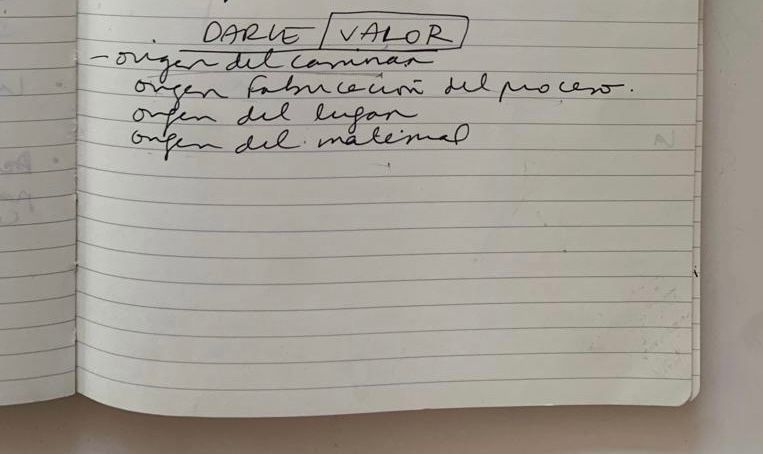 DARLE VALOR
- origen del caminar
origen fabricación del proceso.
origen del lugar
origen del material